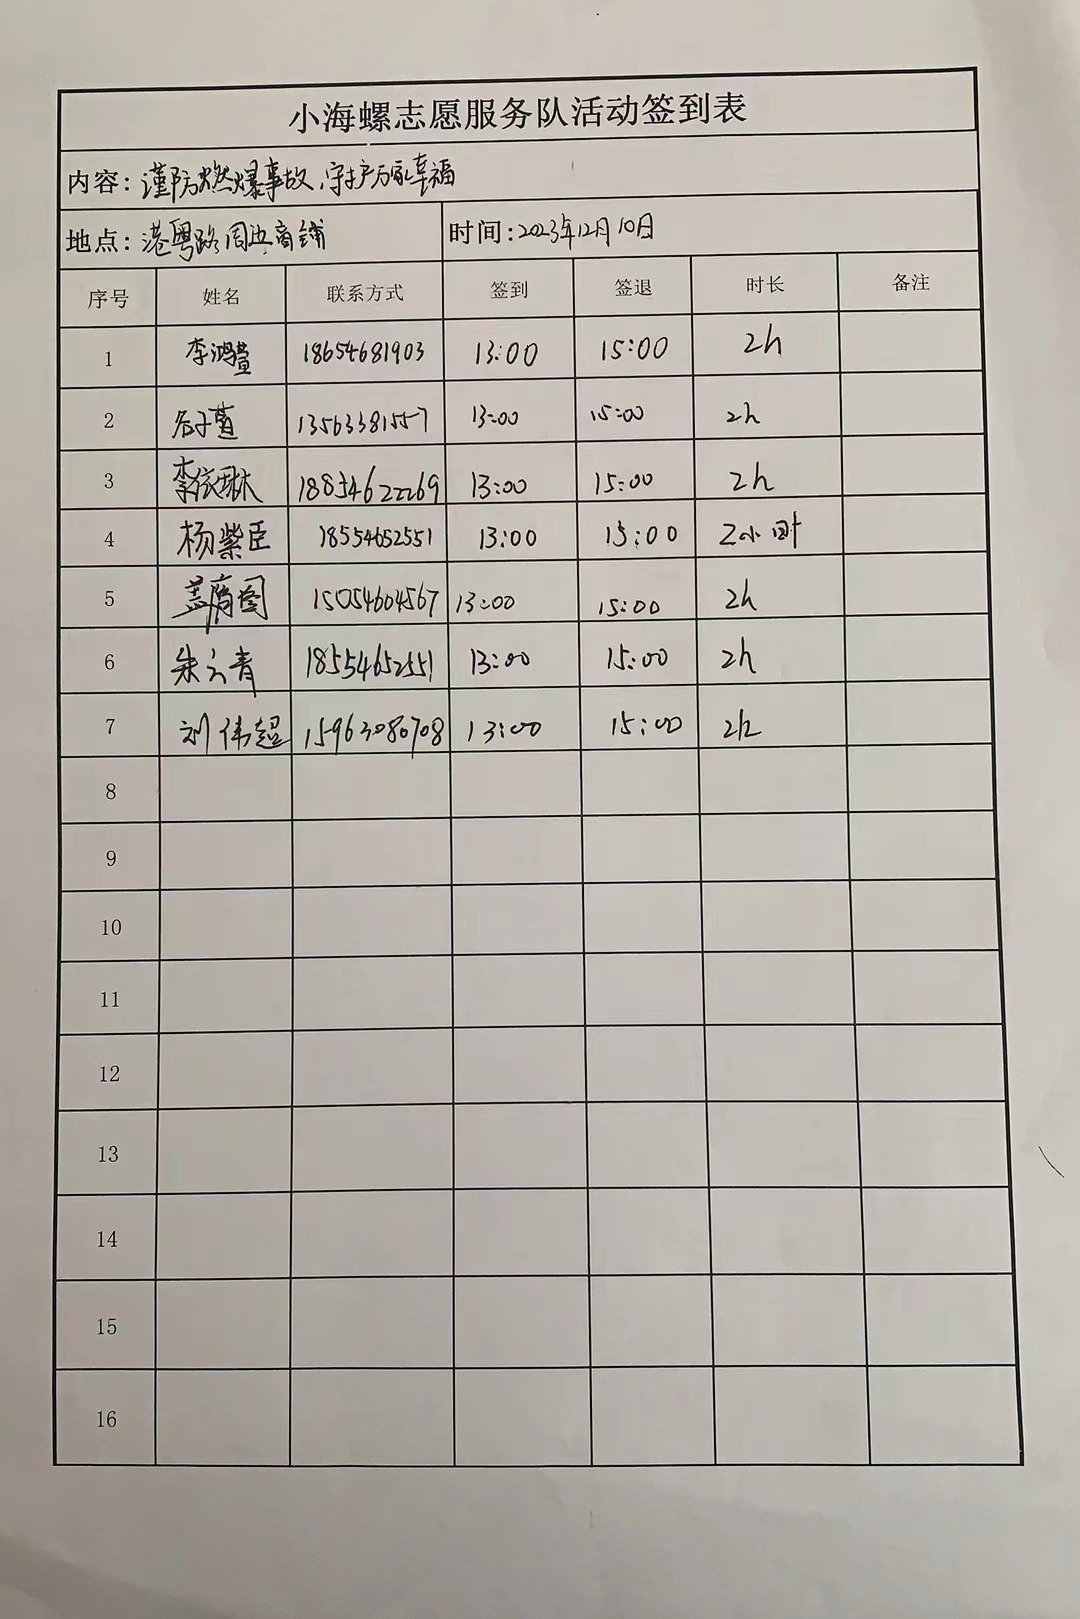 小海螺志愿服务队活动签到表
内容：谨防燃爆事故，守护万家幸福
地点：港粤路周边商铺 时间：2023年12月10日
序号 姓名 联系方式 签到 签退 时长 备注
1 李鸿萱 18654681903 13:00 15:00 2h
2 谷子萱 13563381557 13:00 15:00 2h
3 李依琳 18854622269 13:00 15:00 2h
4 杨紫臣 18554652551 13:00 15:00 2小时
5 盖 15054604567 13:00 15:00 2h
6 朱云青 18554652551 13:00 15:00 2h
7 刘伟超 15963080708 13:00 15:00 2h
8
9
10
11
12
13
14
15
16